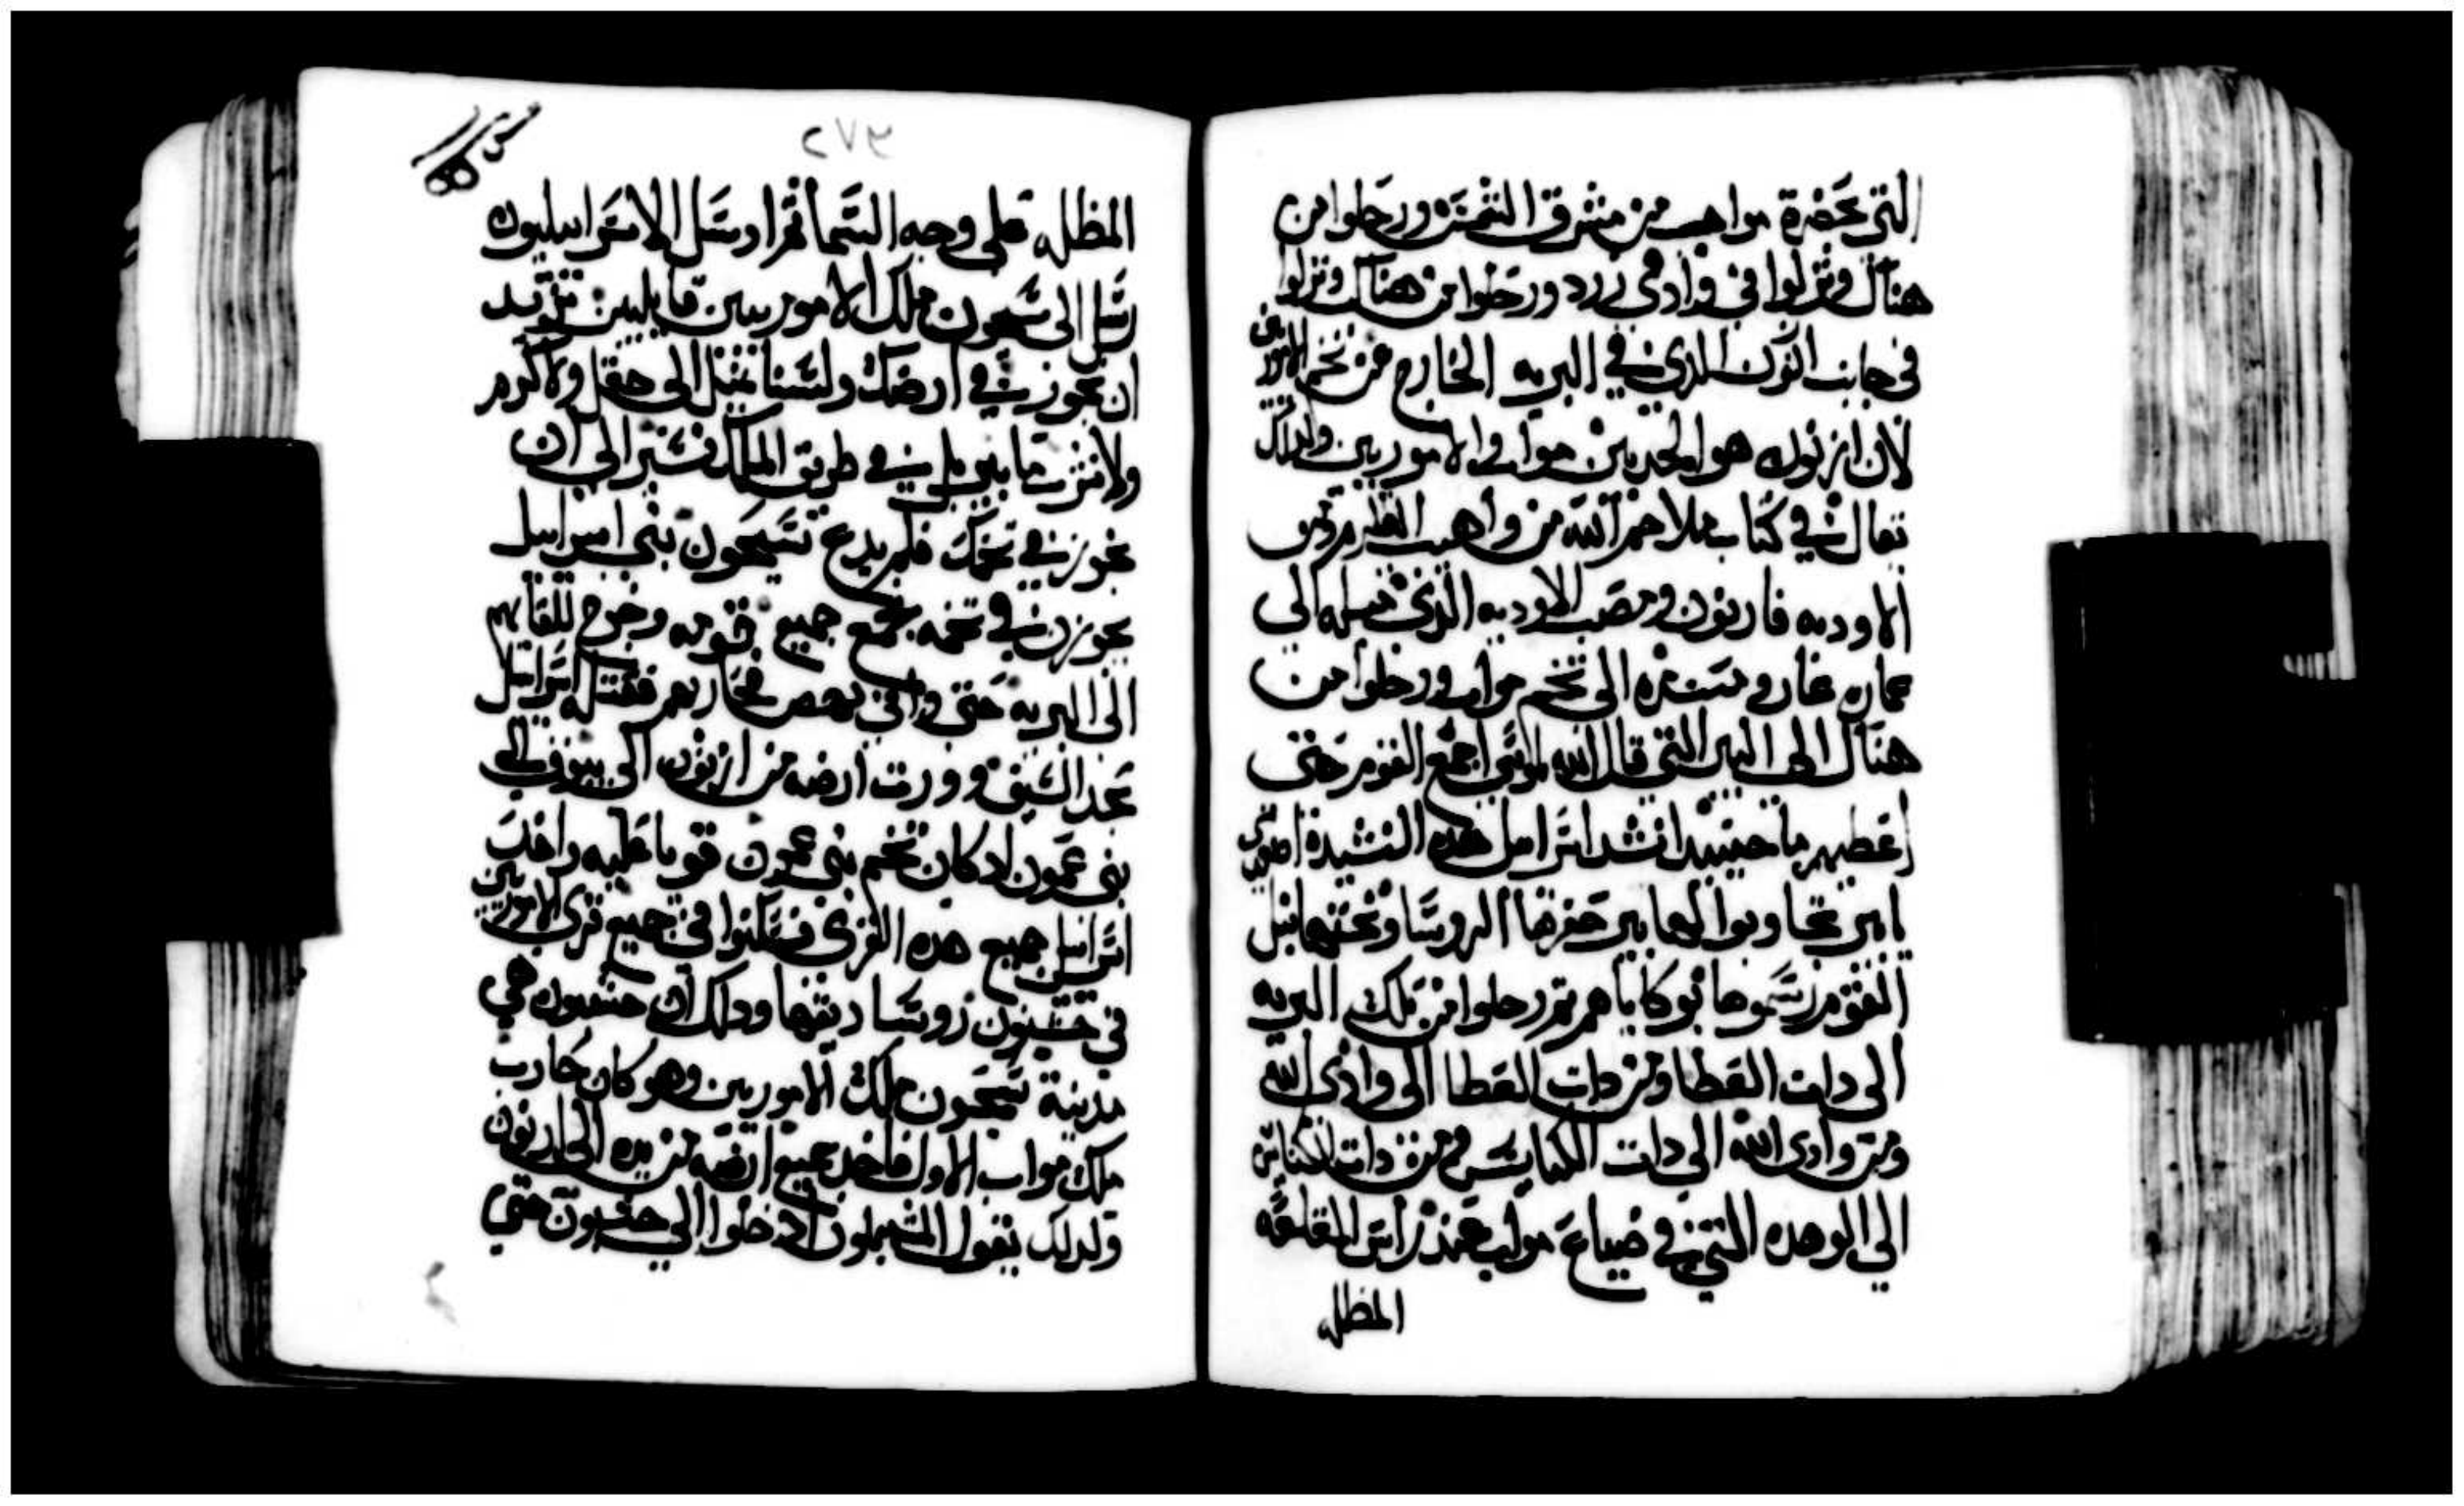 التي بحضرة مواب من مشرق الشمس ورحلوا من
هناك ونزلوا في وادي زرد ورحلوا من هناك ونزلوا
في جانب ارنون الدي في البريه الخارج من تخم الاموريين
لان ارنون هو الحد بين مواب والاموريين ولدلك
يقال في كتاب ملاحم الله من واهب
الاوديه فارنون ومصب الاوديه الذي ميله الي
عماره عار ومستنده الى تخم مواب ورحلوا من
هناك الى البير التي قال الله لموسى اجمع القوم حتى
اعطيهم ما حينيد انشد اسراييل هده النشيدة
يابير تجاوبوا لها بير حفرها الروسا وتحتها نبل
القوم رسموها توكاياهم تم رحلوا من تلك البريه
الى دات العطا ومن دات العطا الى وادي الله
ومن وادي الله الي دات الكنايس ومن دات الكنايس
الي الوهده التي في ضياع مواب عند راس القلعه
المطل
٣٧٢
المطله على وجه السما تم ارسل الاسراييليون
رسل الى سيحون ملك الاموريين قايلين نريد
ان نجوز في ارضك ولسنا نميل الى حقل ولا كرم
ولا نشرب ما بير بل في طريق الملك نسير الى ان
نجوز في تخمك فلم يدع سيحون بني اسراييل
يجوزن في تخمه بجمع جميع قومه وخرج للقايهم
الى البريه حتى وافى يهص فحاربهم فقتله اسراييل
بحد السيف وورت ارضه من ارنون الى يبوق الى
بني عمون اد كان تخم بني عمون قويا عليه واخد
اسراييل جميع هده القرى فسكنوا في جميع قرى الاموريين
في حشبون ورسا تيقها ودلك ان حشبون هي
مدينة سيحون ملك الاموريين وهو كان حارب
ملك مواب الاول فاخد جميع ارضه من يده الى ارنون
ولدلك يقول المتمتلون ادخلوا الي حشبون حتى